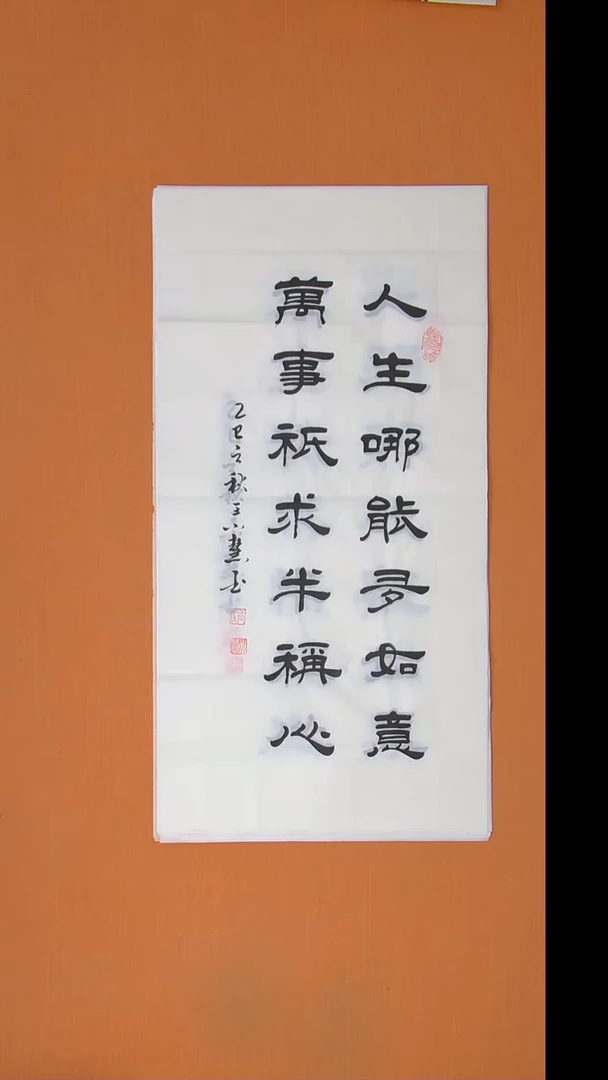 人生哪能多如意
萬事祇求半稱心
乙巳立秋王小燕書